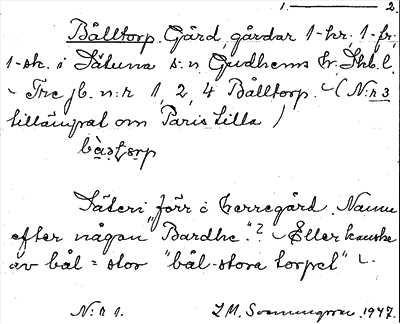 1. ——— 2.
Bålltorp. Gård, gårdar 1-hr. 1-fr.
1-sk. i Sätuna s:n Gudhems hr. Skb. l.
- Tre jb. n:r 1, 2, 4 Bålltorp. - (N:r 3
tillämpat om Paris lilla)
Säteri "förr i herregård. Namn
efter någon "Bardhe"? - Eller kanske
av bål = stor "bål-stora torpet" -.
N:r 1. 1947.